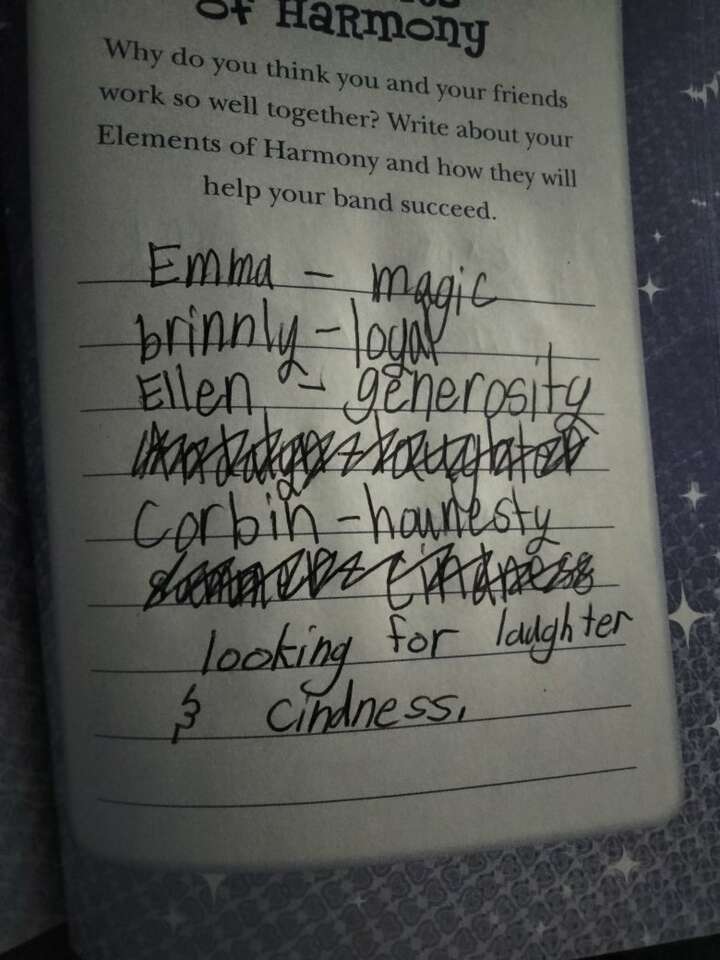 of Harmony
Why do you think you and your friends
work so well together? Write about your
Elements of Harmony and how they will
help your band succeed.
Emma – magic
brinnly – loyal
Ellen – generosity
Corbin – hounesty
looking for laughter
& cindness.